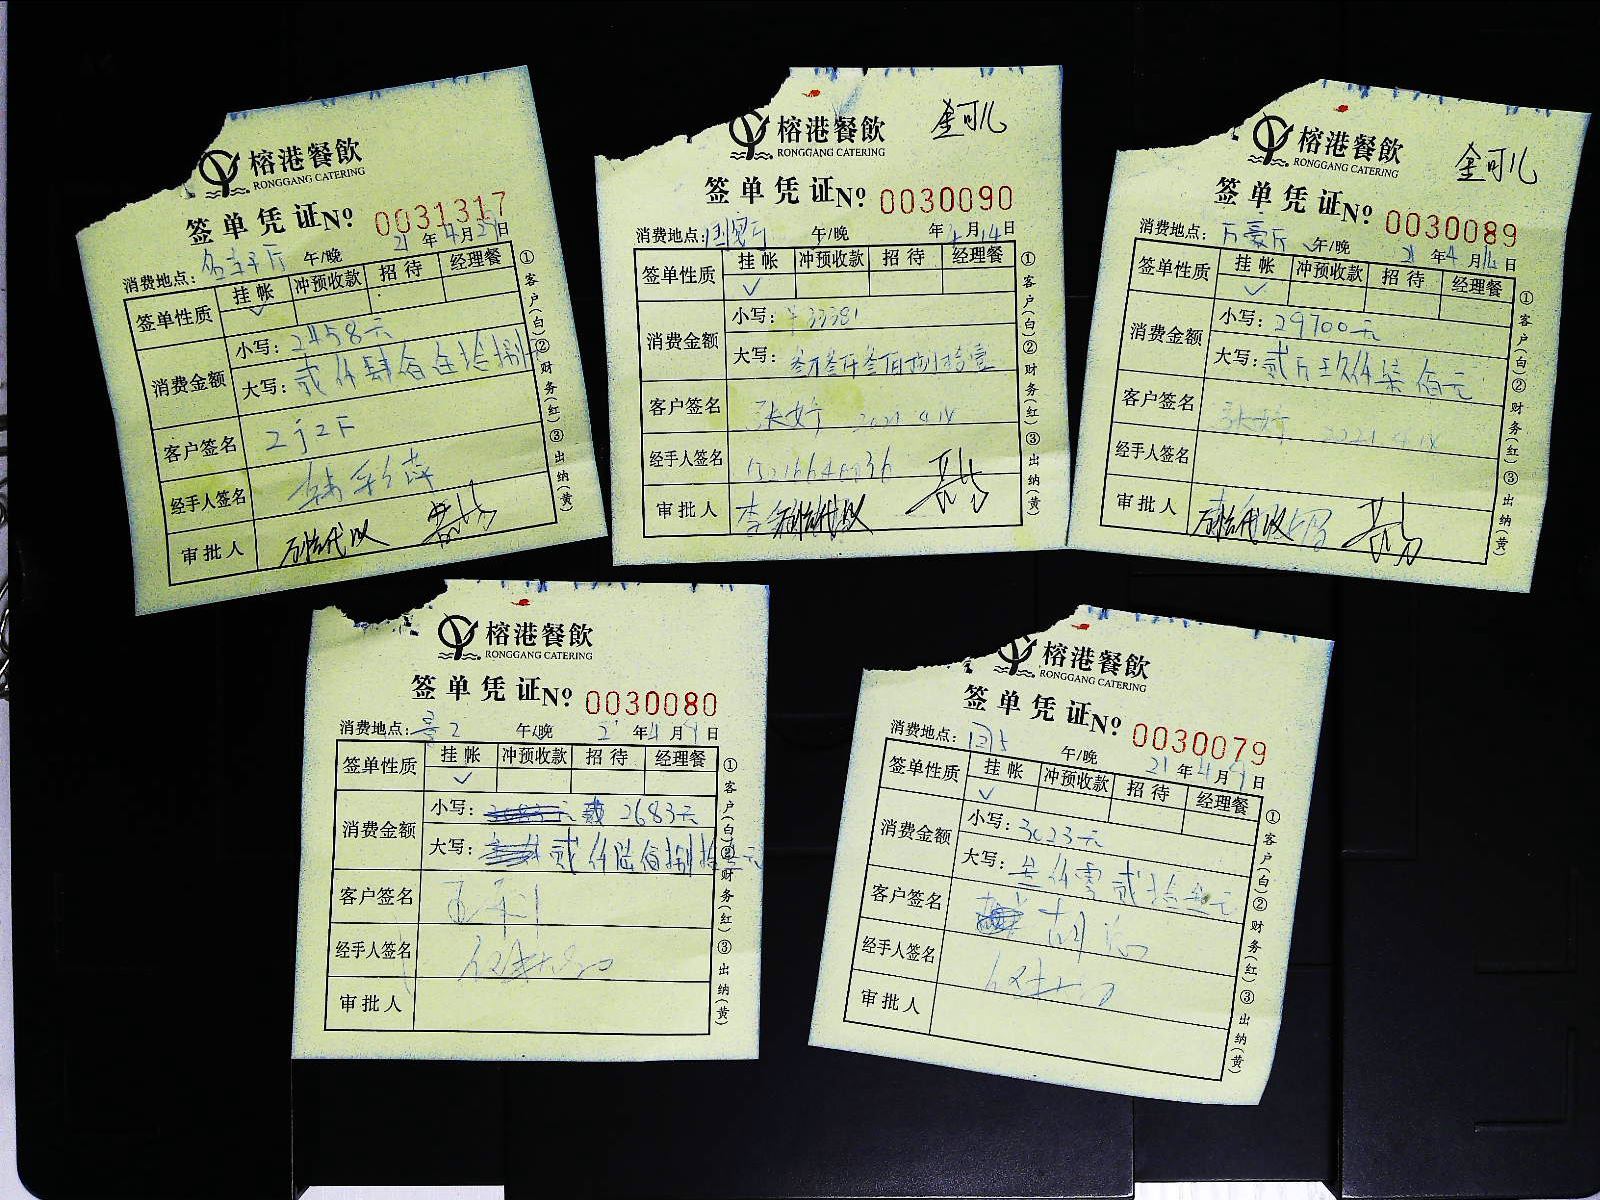 榕港餐飲
RONGGANG CATERING
签单凭证№ 0031317
21年4月2日
消费地点: 厅 午/晚
签单性质 挂帐 冲预收款 招待 经理餐
✓
消费金额 小写: 2458元
大写: 贰仟肆佰伍拾捌
客户签名
经手人签名
审批人 代
①客户(白)②财务(红)③出纳(黄)
榕港餐飲
RONGGANG CATERING
金可儿
签单凭证№ 0030090
消费地点: 厅 午/晚 年4月14日
签单性质 挂帐 冲预收款 招待 经理餐
✓
消费金额 小写: ¥33381
大写: 叁万叁仟叁佰捌拾壹
客户签名 张婷 2021.4.14
经手人签名
审批人 李 代
①客户(白)②财务(红)③出纳(黄)
榕港餐飲
RONGGANG CATERING
金可儿
签单凭证№ 0030089
消费地点: 万豪厅 午/晚 21年4月14日
签单性质 挂帐 冲预收款 招待 经理餐
✓
消费金额 小写: 29700元
大写: 贰万玖仟柒佰元
客户签名 张婷 2021.4.14
经手人签名
审批人 代
①客户(白)②财务(红)③出纳(黄)
榕港餐飲
RONGGANG CATERING
签单凭证№ 0030080
消费地点: 2 午/晚 21年4月9日
签单性质 挂帐 冲预收款 招待 经理餐
✓
消费金额 小写: 3683元 2683元
大写: 贰仟陆佰捌拾叁元
客户签名
经手人签名
审批人
①客户(白)②财务(红)③出纳(黄)
榕港餐飲
RONGGANG CATERING
签单凭证№ 0030079
消费地点: 午/晚 21年4月9日
签单性质 挂帐 冲预收款 招待 经理餐
✓
消费金额 小写: 3023元
大写: 叁仟零贰拾叁元
客户签名 胡
经手人签名
审批人
①客户(白)②财务(红)③出纳(黄)